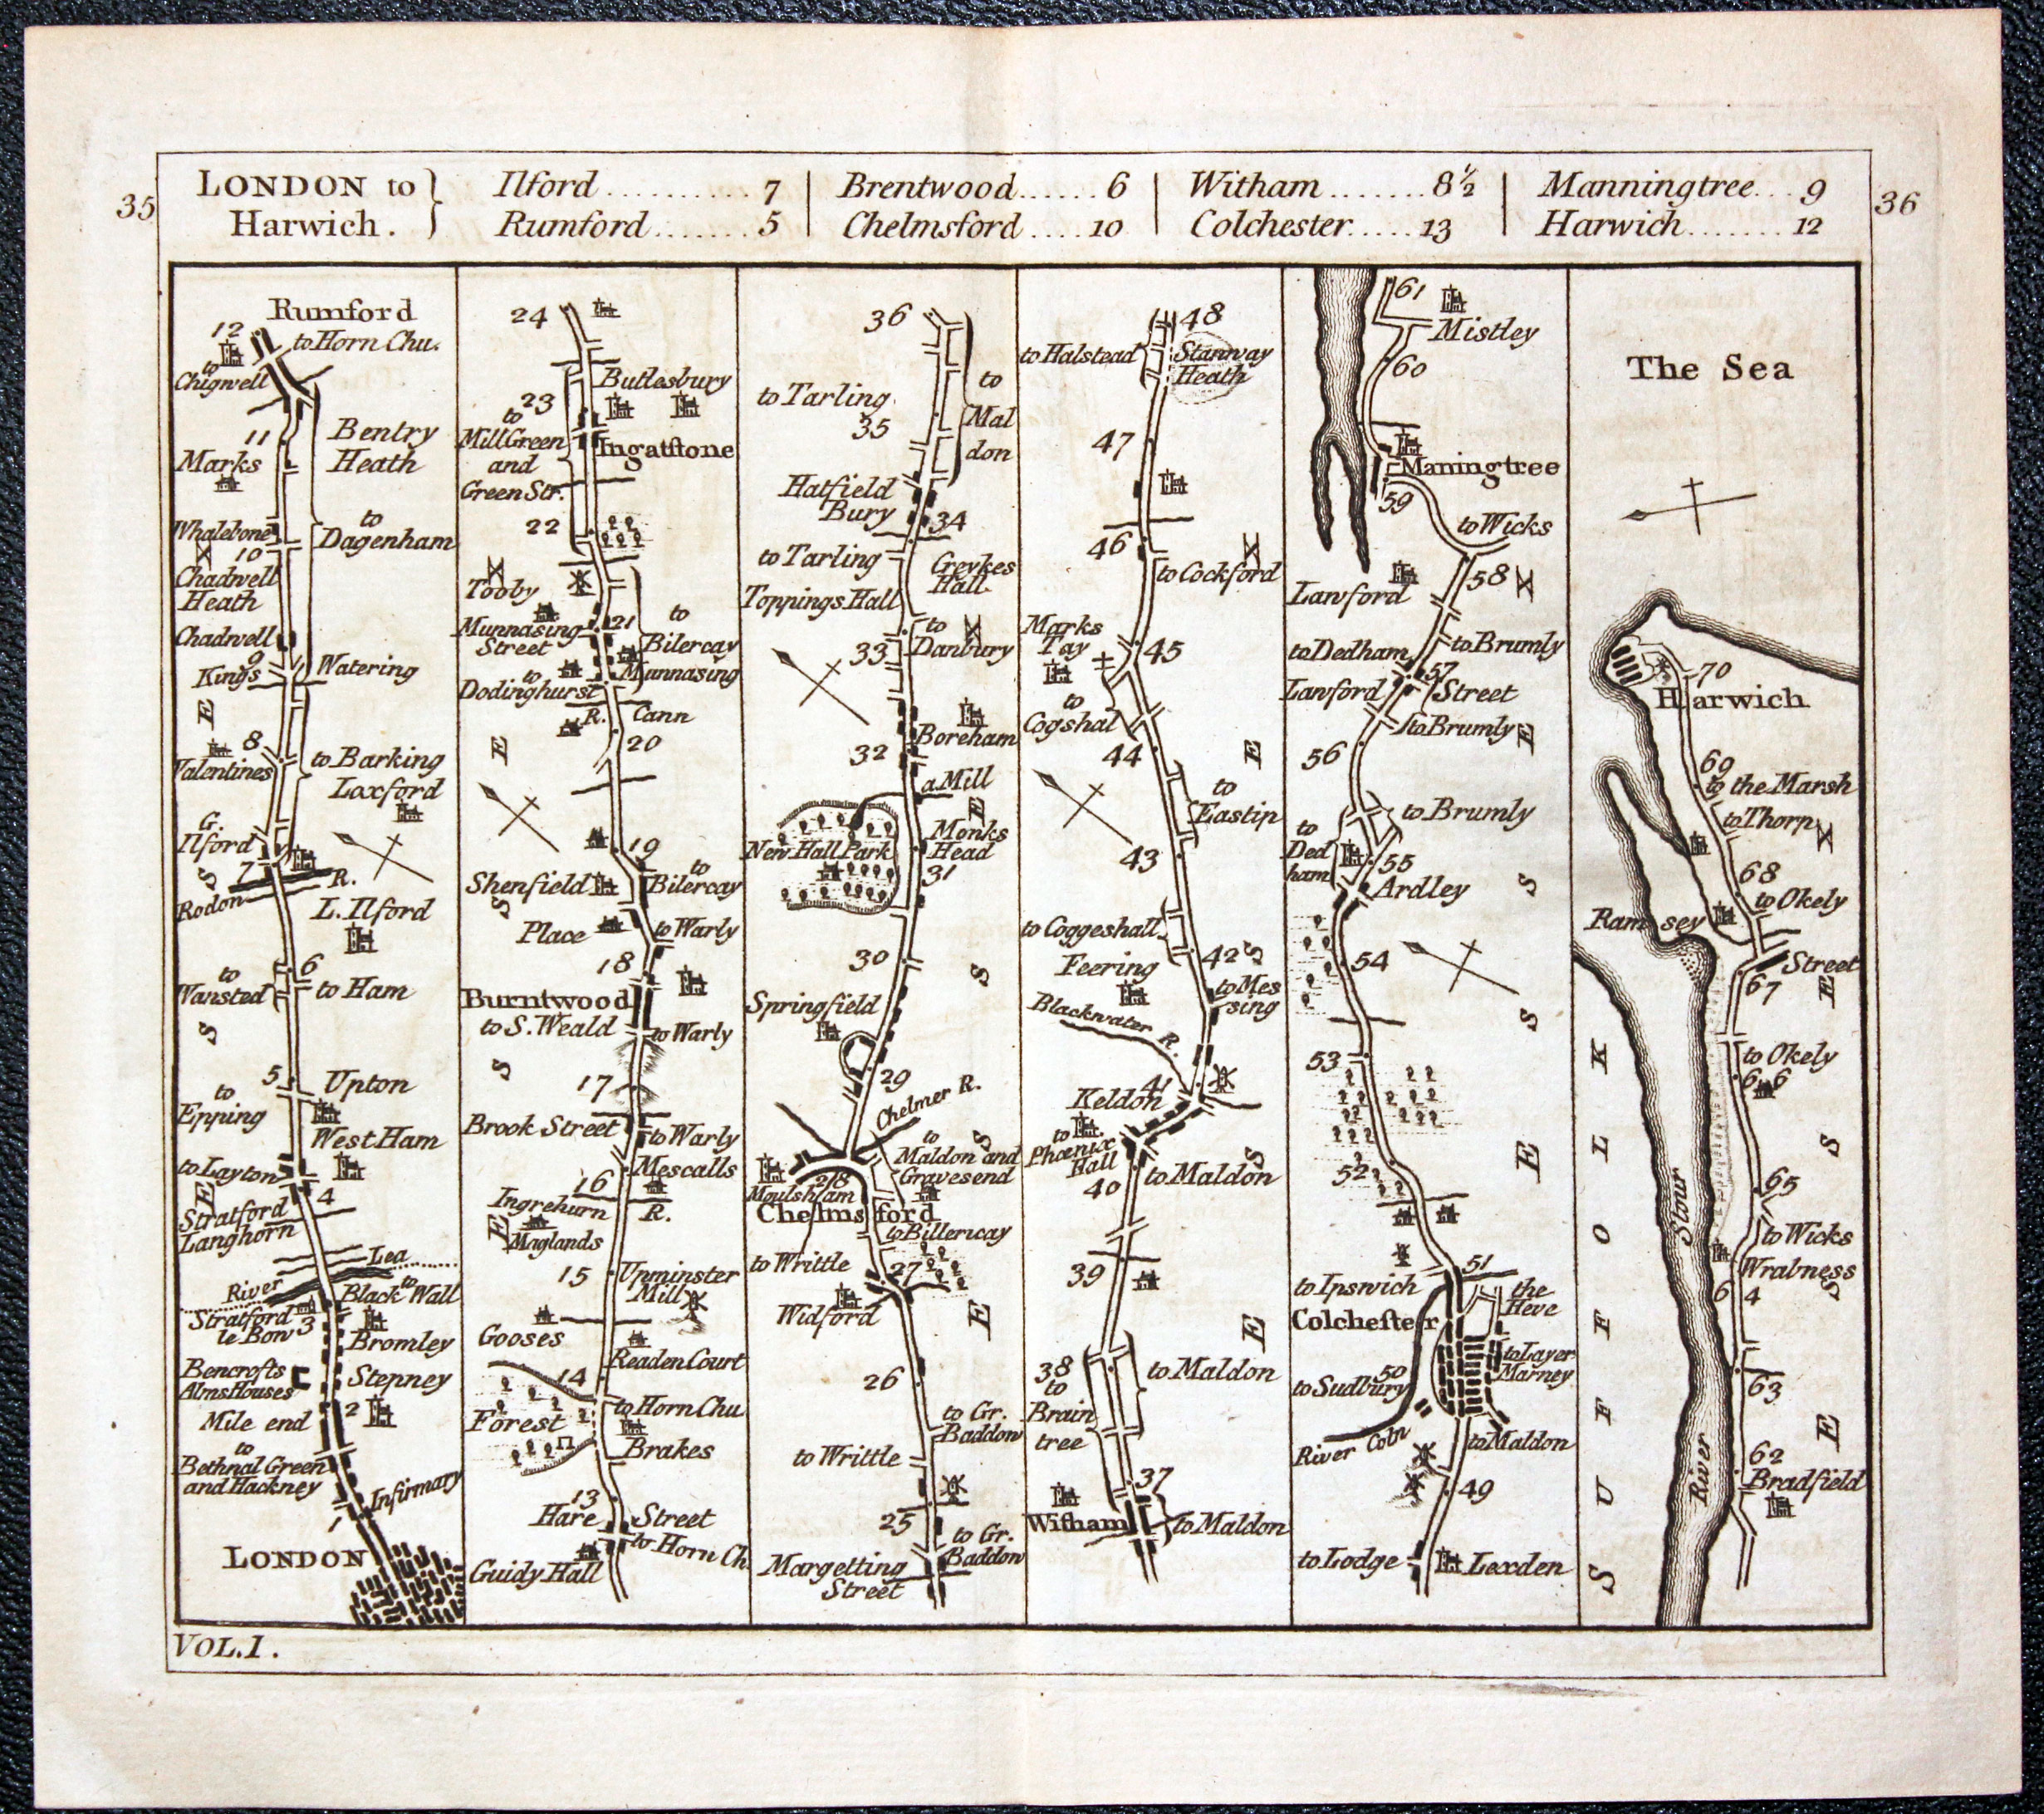 35
LONDON to
Harwich.
Ilford .......... 7
Rumford ....... 5
Brentwood ...... 6
Chelmsford .... 10
Witham ....... 8½
Colchester ..... 13
Manningtree ... 9
Harwich ....... 12
36
Rumford
12
to Horn Chu.
to
Chigwell
11
Bentry
Heath
Marks
Whalebone
to
Dagenham
10
Chadwell
Heath
Chadwell
9
Kings
Watering
E
8
Valentines
to Barking
Loxford
G.
Ilford
7
R.
S
Rodon
L. Ilford
6
to
Wansted
to Ham
S
5
Upton
to
Epping
West Ham
to Layton
4
E
Stratford
Langhorn
Lea
River
to
Black Wall
Stratford
le Bow
3
Bromley
Bencrofts
Alms Houses
Stepney
2
Mile end
to
Bethnal Green
and Hackney
Infirmary
1
LONDON
24
Butlesbury
23
to
Mill Green
and
Green Str.
Ingatstone
22
Tooby
21
Munnasing
Street
to
Bilercay
Munnasing
to
Dodinghurst
R. Cann
20
E
19
to
Bilercay
Shenfield
S
Place
to Warly
18
Burntwood
to S. Weald
to Warly
S
17
Brook Street
to Warly
Mescalls
16
Ingrehurn
R.
E
Maglands
15
Upminster
Mill
Gooses
Readen Court
14
to Horn Chu
Forest
Brakes
13
Hare
Street
to Horn Ch.
Guidy Hall
36
to
Mal
don
to Tarling
35
Hatfield
Bury
34
to Tarling
Crevkes
Hall
Toppings Hall
33
to
Danbury
32
Boreham
a Mill
E
New Hall Park
Monks
Head
31
30
S
Springfield
29
Chelmer R.
S
to
Maldon and
Gravesend
28
Moulsham
Chelmsford
to Billericay
to Writtle
27
Widford
E
26
to Gr.
Baddon
to Writtle
25
to Gr.
Baddon
Margetting
Street
48
to Halstead
Stanway
Heath
47
46
to Cockford
Marks
Tay
45
to
Cogshal
44
E
to
Eastip
43
to Coggeshall
42
S
Feering
to Mes
sing
Blackwater R.
41
Keldon
to
Phœnix
Hall
S
40
to Maldon
39
E
38
to
Brain
tree
to Maldon
37
Witham
to Maldon
61
Mistley
60
Maningtree
59
to Wicks
58
Lawford
to Dedham
to Brumly
57
Lawford
Street
to Brumly
E
56
to Brumly
to
Ded
ham
55
Ardley
S
54
S
53
52
E
51
to Ipswich
the
Heve
Colchester
to Layer
Marney
50
to Sudbury
River Coln
to Maldon
49
to Lodge
Lexden
The Sea
70
Harwich
69
to the Marsh
to Thorp
68
to Okely
Ramsey
Street
67
E
to Okely
66
S
65
to Wicks
Wrabness
S
64
63
E
62
Bradfield
River Stour
SUFFOLK
VOL.I.